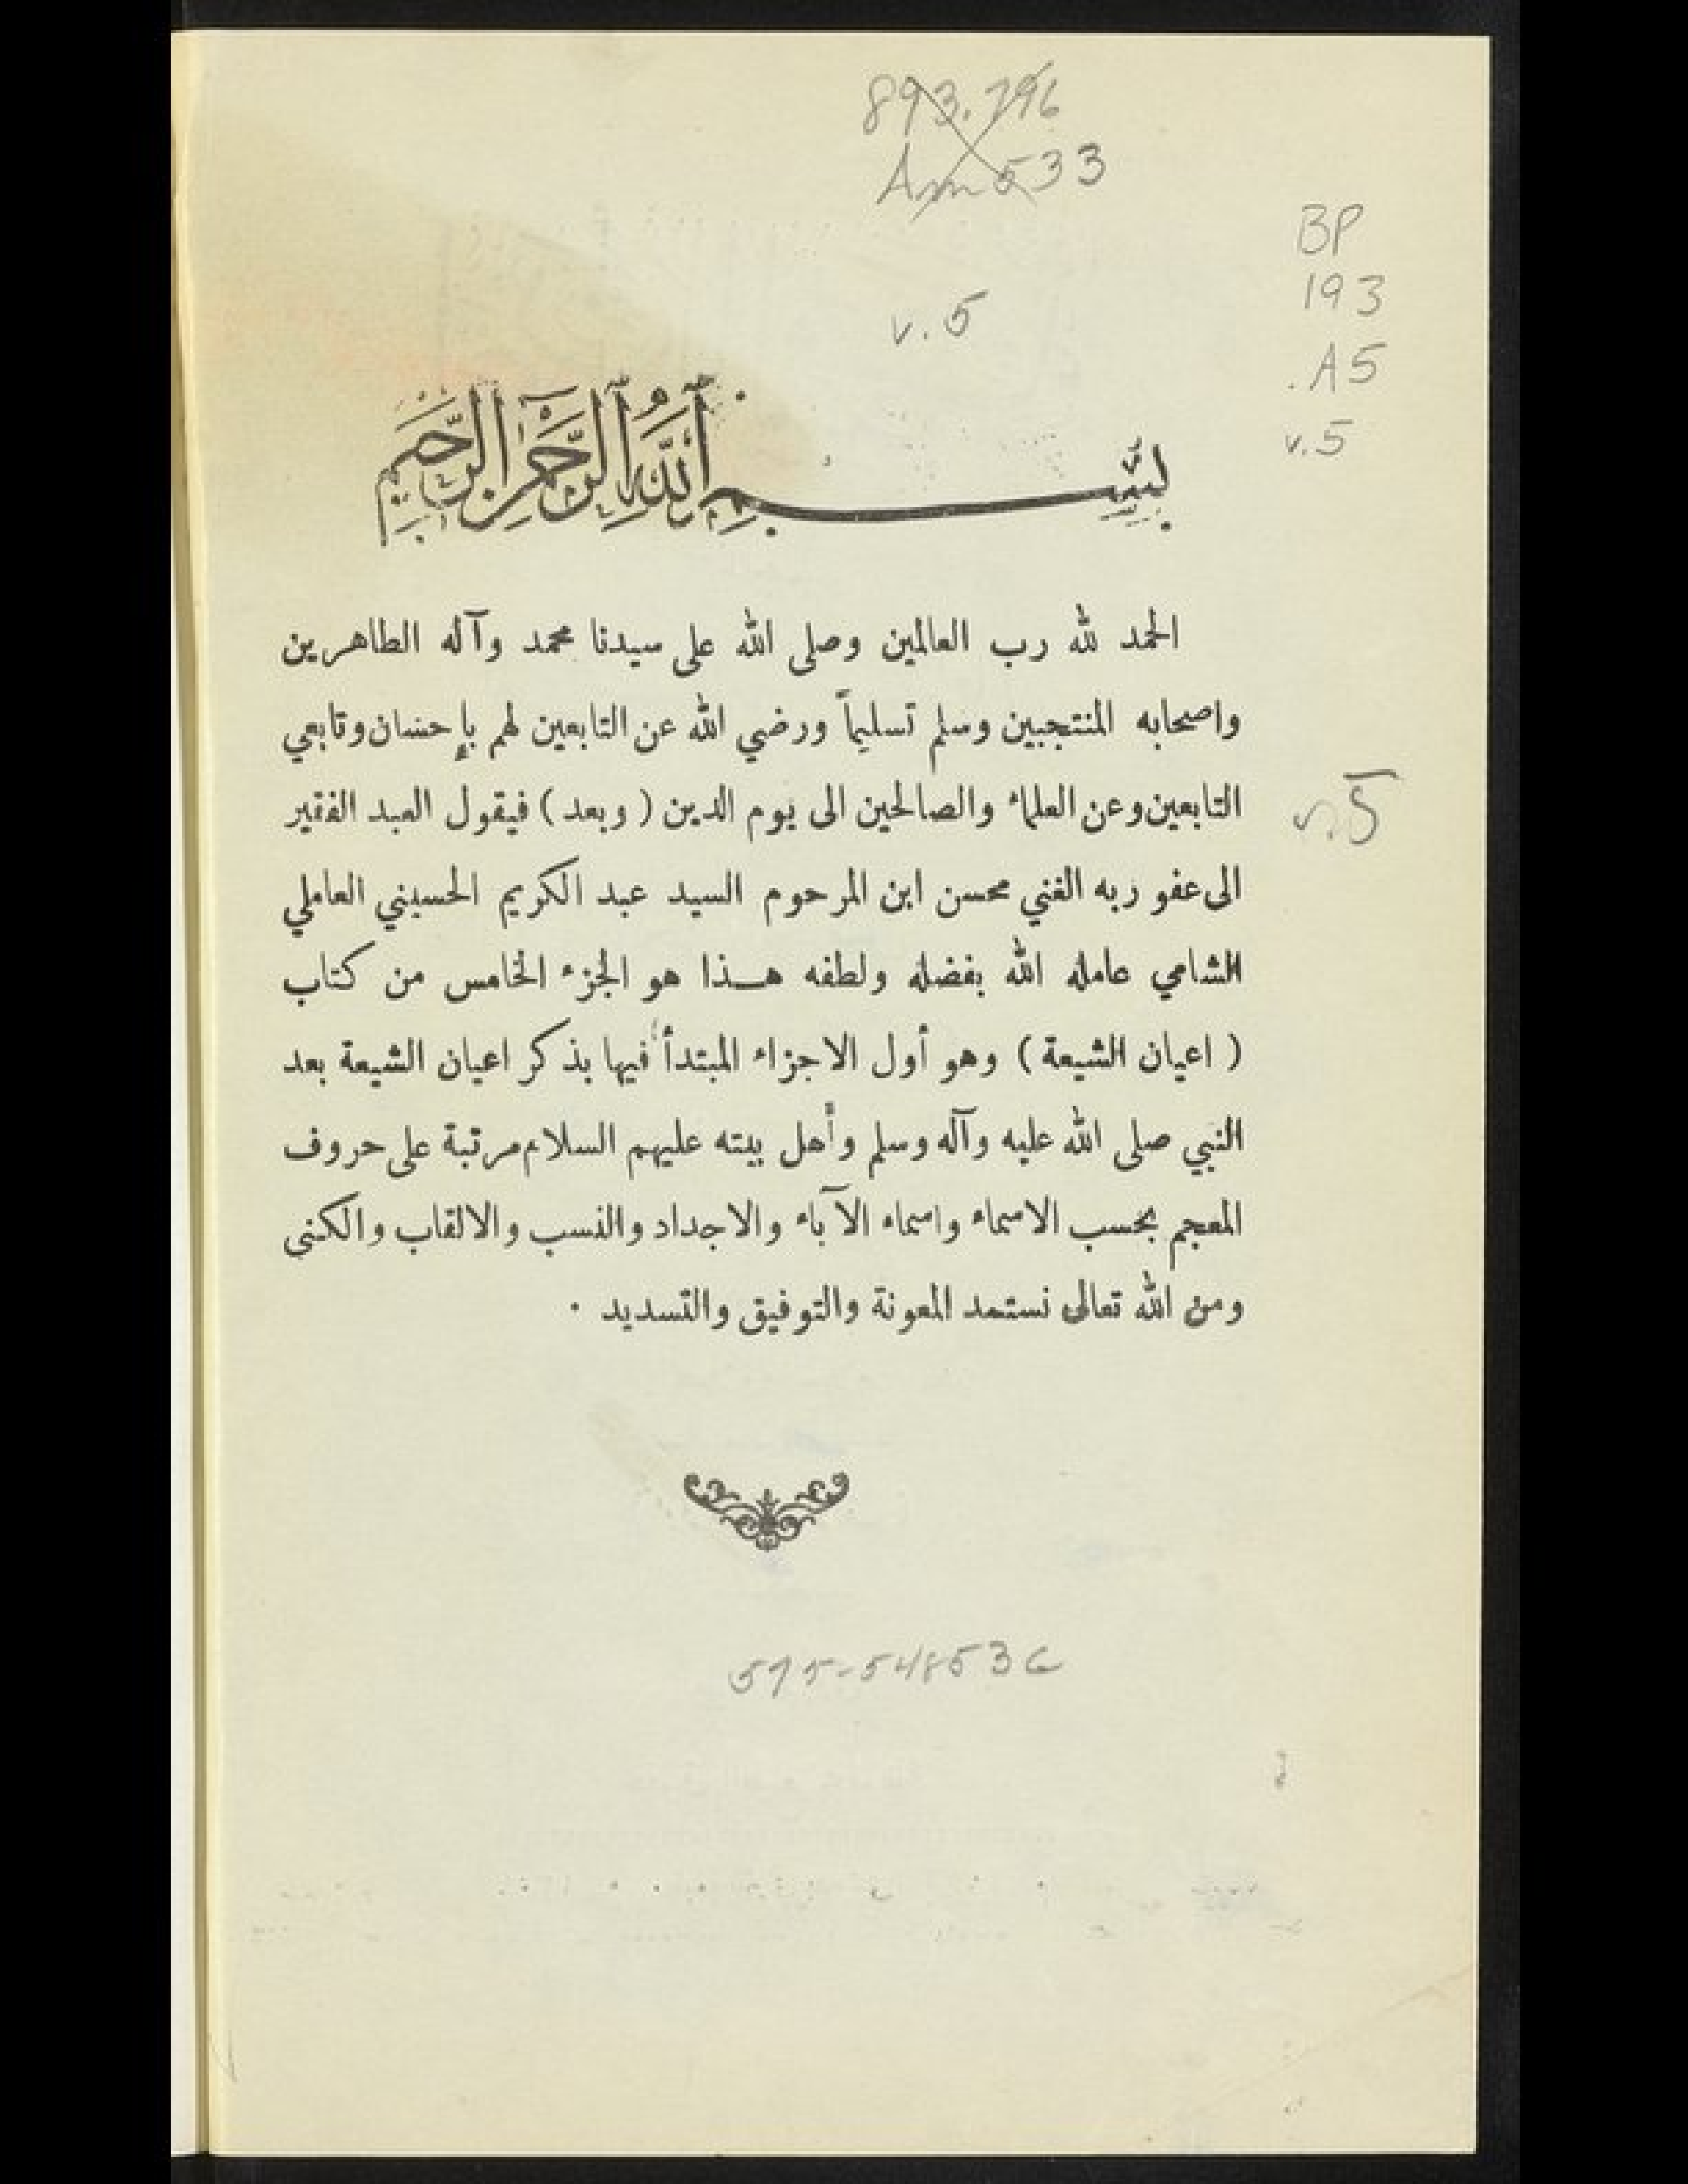 893.796
Am 533
BP
193
.A5
v.5
v.5
بسم الله الرحمن الرحيم
الحمد لله رب العالمين وصلى الله على سيدنا محمد وآله الطاهرين
واصحابه المنتجبين وسلم تسليماً ورضي الله عن التابعين لهم بإحسان وتابعي
التابعين وعن العلماء والصالحين الى يوم الدين ( وبعد ) فيقول العبد الفقير
v.5
الى عفو ربه الغني محسن ابن المرحوم السيد عبد الكريم الحسيني العاملي
الشامي عامله الله بفضله ولطفه هـذا هو الجزء الخامس من كتاب
( اعيان الشيعة ) وهو أول الاجزاء المبتدأ فيها بذكر اعيان الشيعة بعد
النبي صلى الله عليه وآله وسلم وأهل بيته عليهم السلام مرتبة على حروف
المعجم بحسب الاسماء واسماء الآباء والاجداد والنسب والالقاب والكنى
ومن الله تعالى نستمد المعونة والتوفيق والتسديد ·